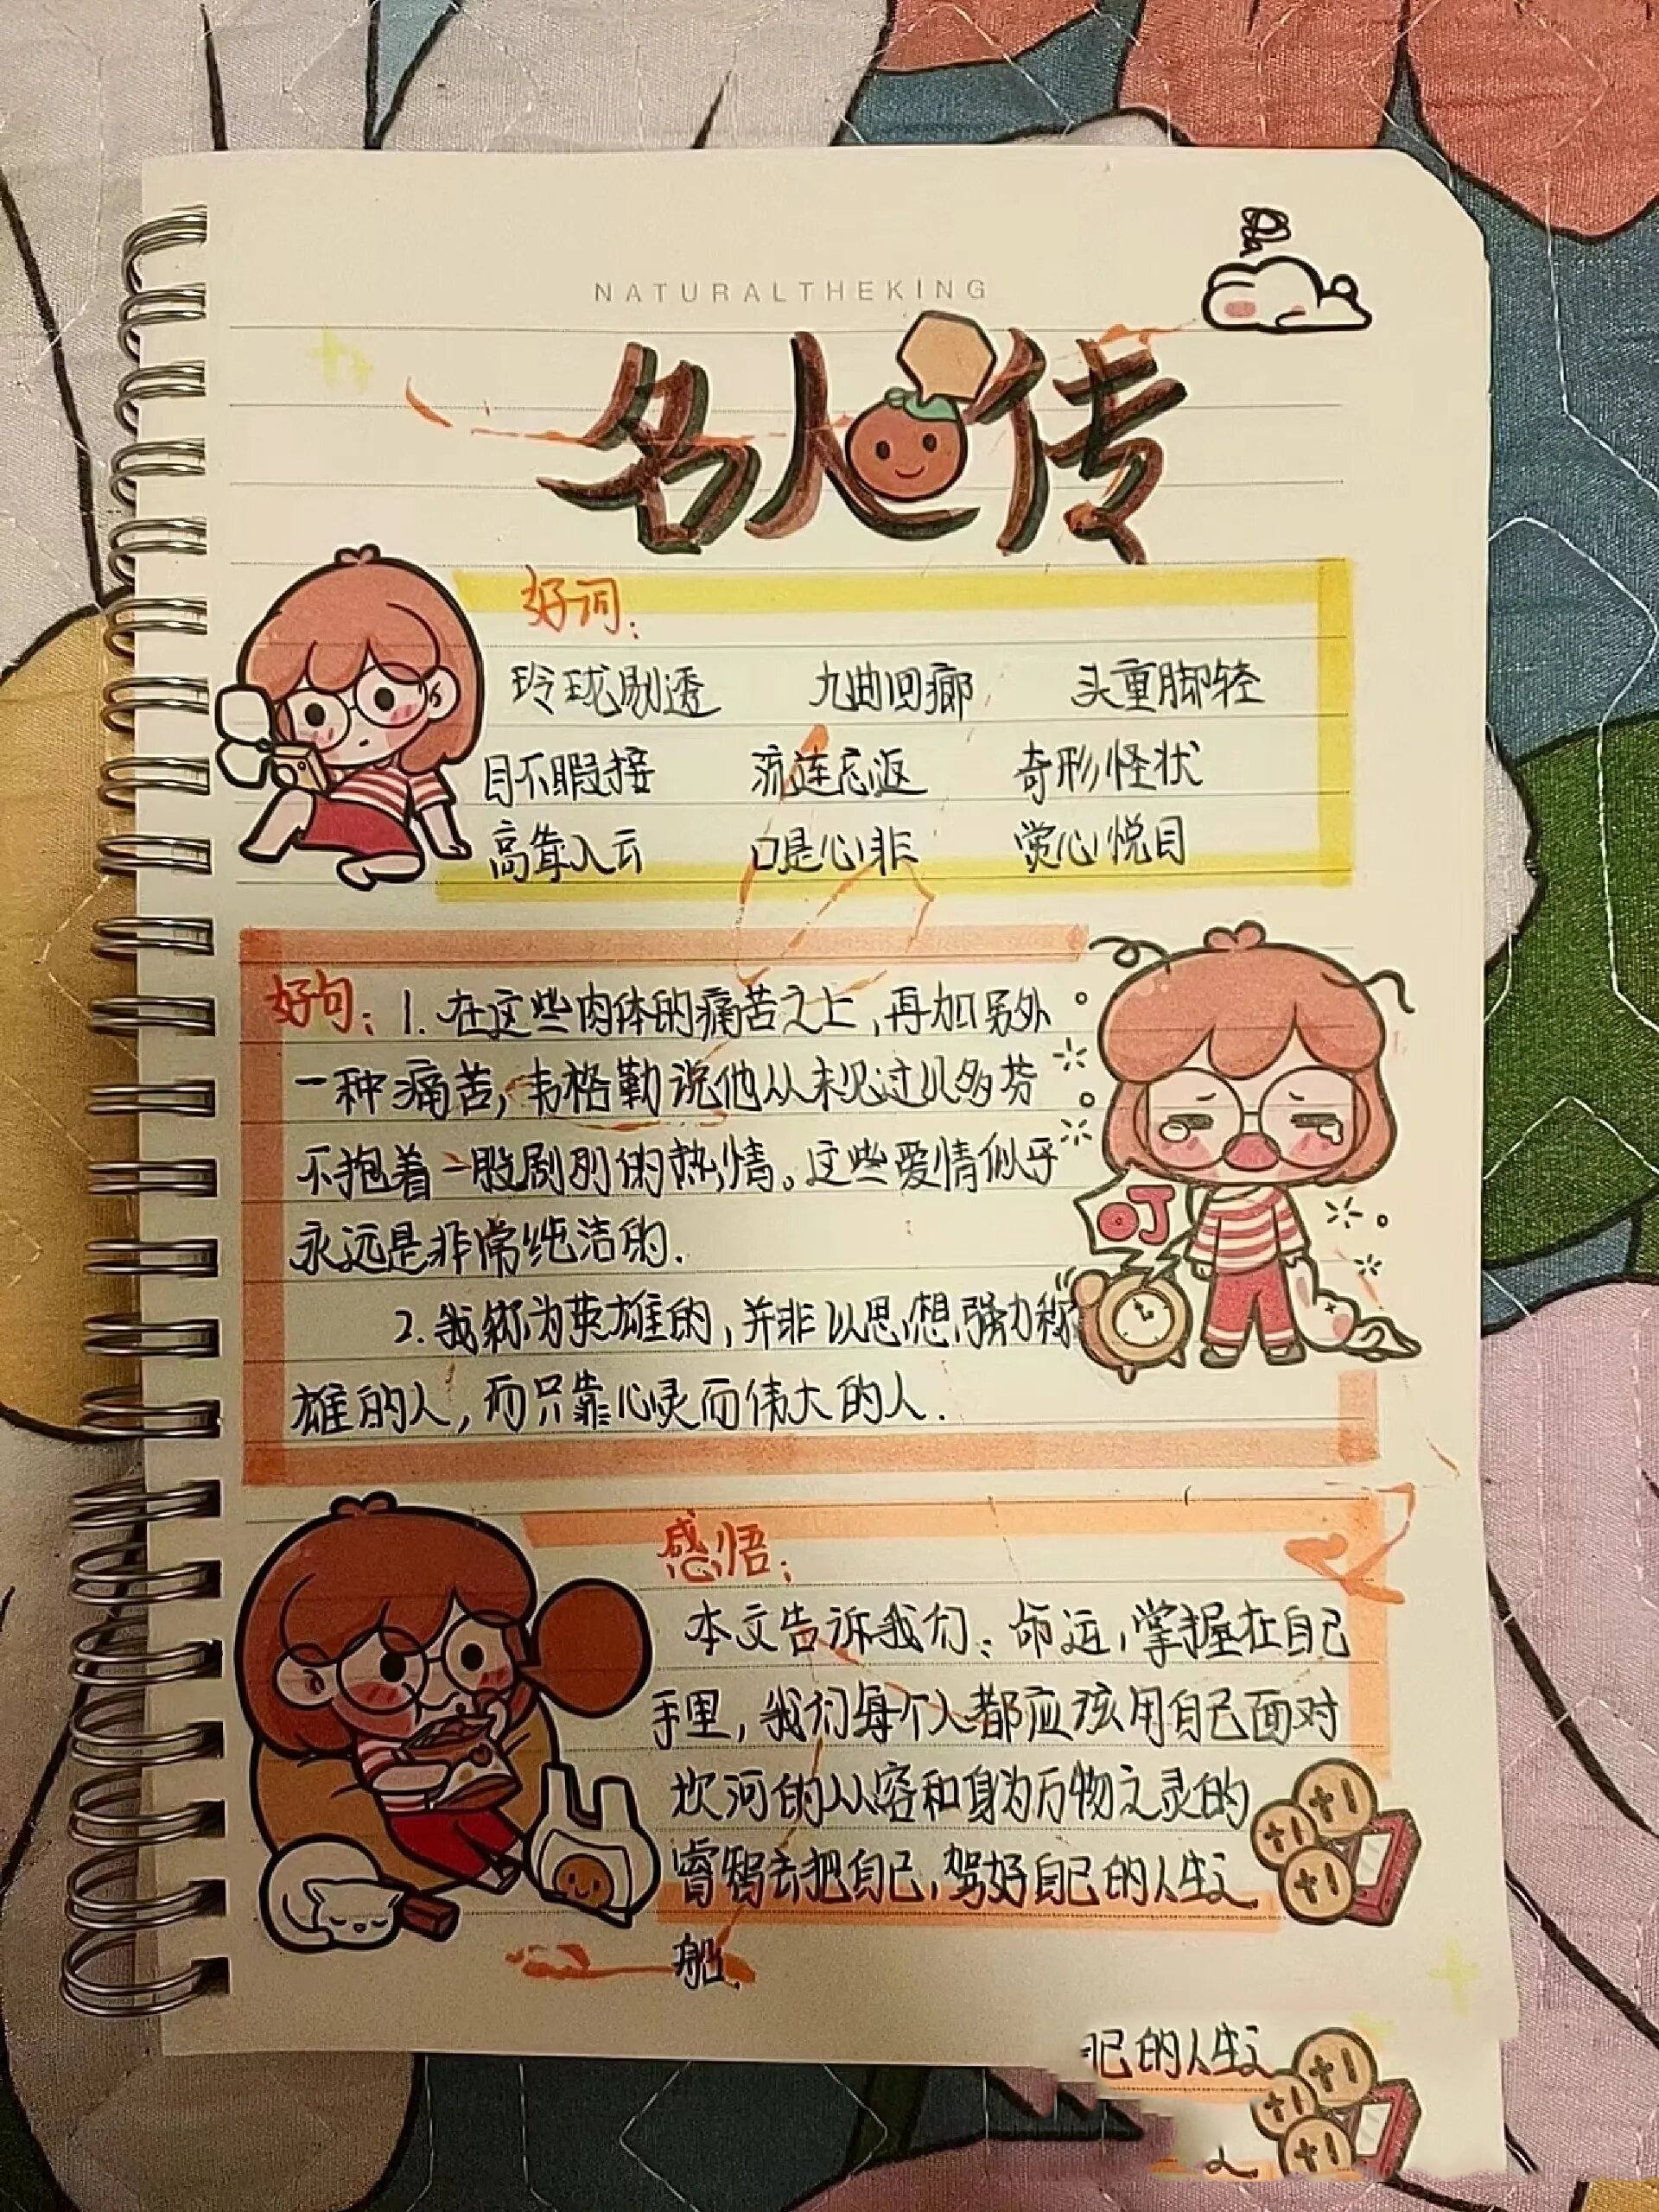 NATURALTHEKING
名人传
好词:
玲珑剔透 九曲回廊 头重脚轻
目不暇接 流连忘返 奇形怪状
高耸入云 口是心非 赏心悦目
好句: 1. 在这些肉体的痛苦之上,再加另外
一种痛苦,韦格勒说他从未见过贝多芬
不抱着一股剧烈的热情。这些爱情似乎
永远是非常纯洁的.
叮
2. 我称为英雄的,并非以思想强力称
雄的人,而只靠心灵而伟大的人.
感悟:
本文告诉我们:命运,掌握在自己
手里,我们每个人都应该用自己面对
坎河的从容和身为万物之灵的
睿智去把自己,驾好自己的人生之
+1
+1
+1
船.
己的人生之
+1
+1
+1
之